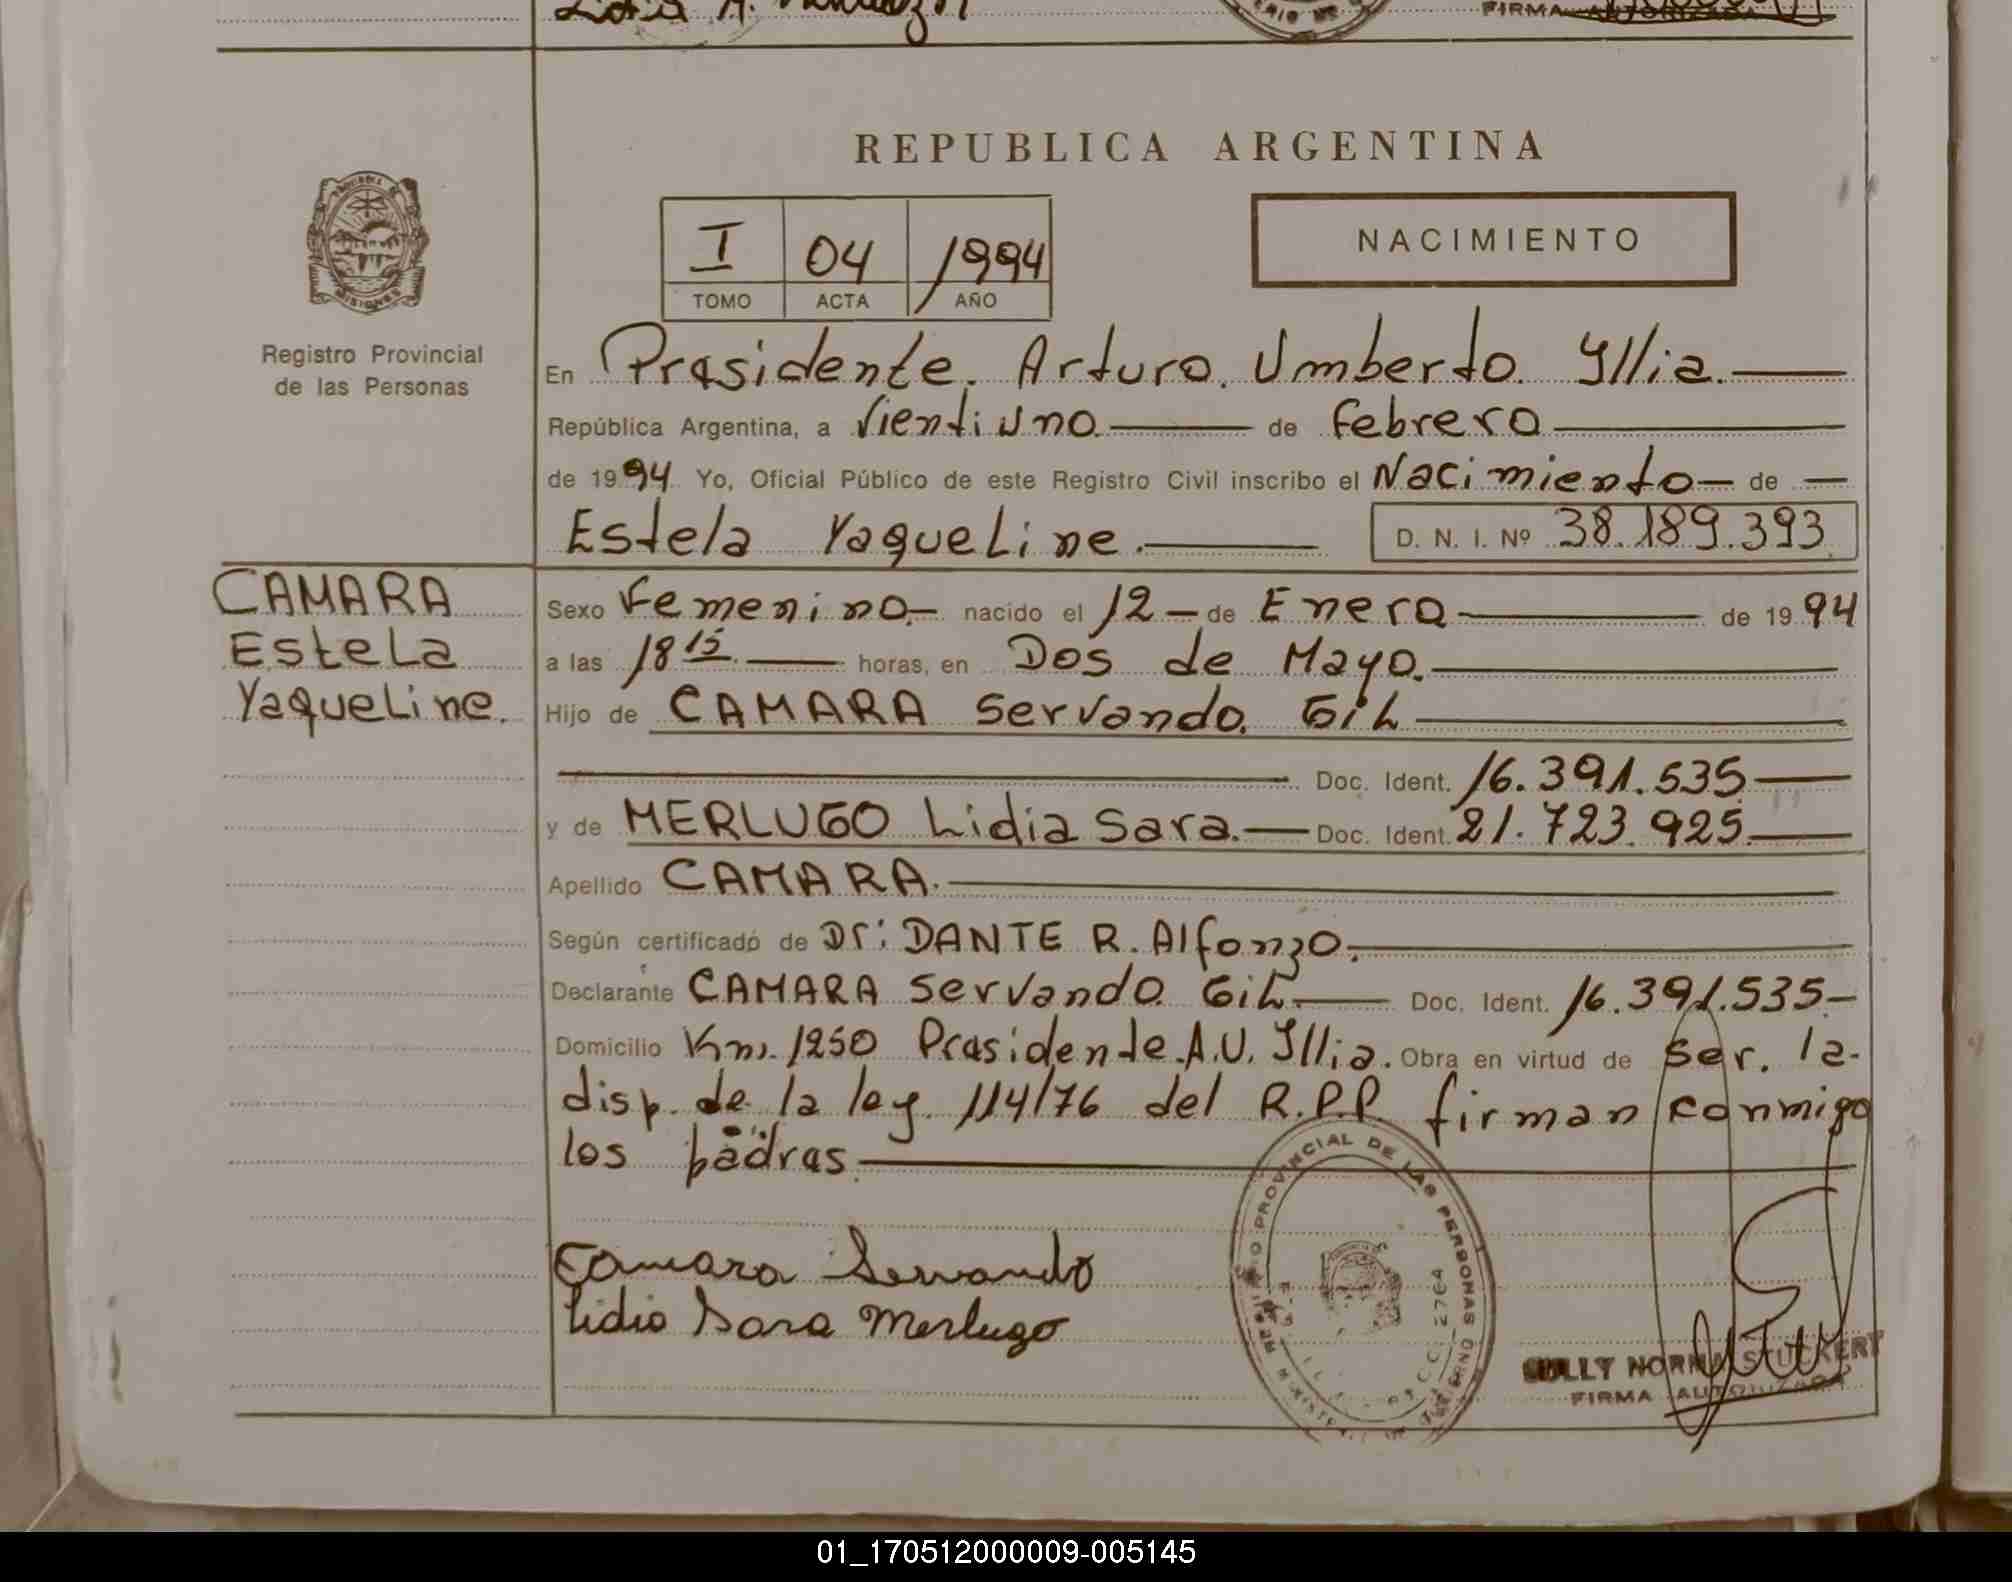 Lidia A.
FIRMA AUTORIZADA
REPUBLICA ARGENTINA
I 04 1994
TOMO ACTA AÑO
NACIMIENTO
MISIONES
Registro Provincial
de las Personas
En Presidente. Arturo. Umberto. Yllia.
República Argentina, a Vientiuno de Febrero
de 1994 Yo, Oficial Público de este Registro Civil inscribo el Nacimiento de
Estela Yaqueline. D. N. I. Nº 38.189.393
CAMARA
Estela
Yaqueline.
Sexo Femenino. nacido el 12 de Enero de 1994
a las 18 15 horas, en Dos de Mayo.
Hijo de CAMARA Servando. Gil
Doc. Ident. 16.391.535
y de MERLUGO Lidia Sara. Doc. Ident. 21.723.925
Apellido CAMARA.
Según certificado de Dr: DANTE R. Alfonzo.
Declarante CAMARA Servando. Gil. Doc. Ident. 16.391.535
Domicilio Km. 1250 Presidente.A.U. Illia. Obra en virtud de Ser. la
disp. de la ley. 114/76 del R.P.P firman conmigo
los padres.
Camara Servando
Lidia Sara Merlugo
REGISTRO PROVINCIAL DE LAS PERSONAS
2764
NORMA STUCKERT
FIRMA AUTORIZADA
01_170512000009-005145